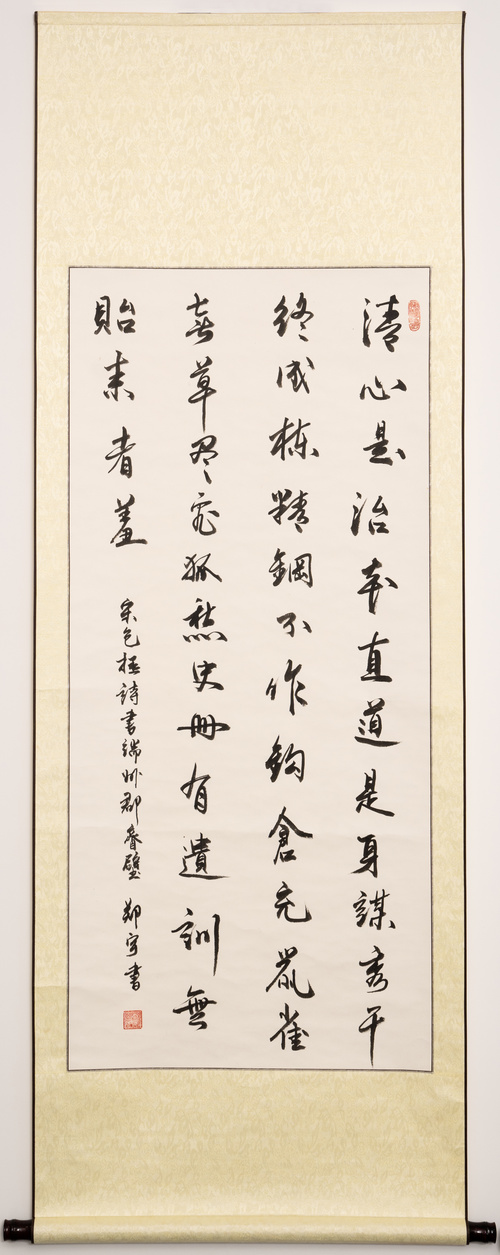 清心是治本直道是身謀秀干
終成栋精鋼不作鈎倉充鼠雀
喜草尽兔狐愁史冊有遺訓無
貽来者羞
宋包拯詩書端州郡斋壁 郑宇書